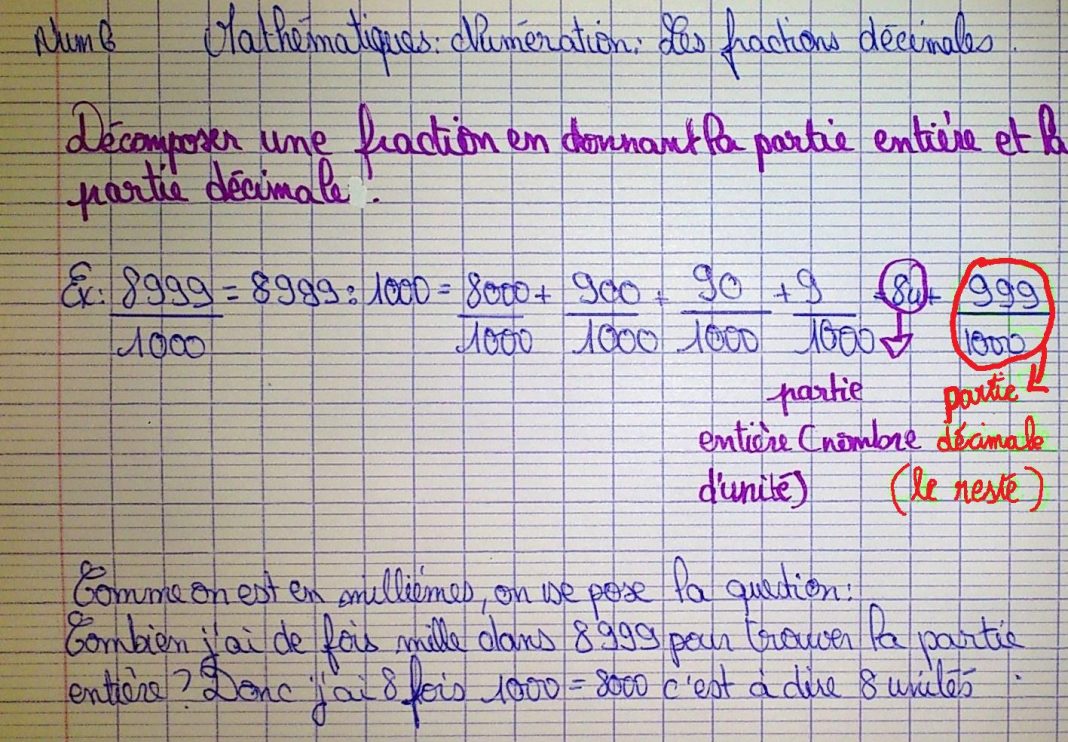 Num 6 Mathématiques: Numération: Les fractions décimales.
Décomposer une fraction en donnant la partie entière et la
partie décimale.
Ex: 8999/1000 = 8999 : 1000 = 8000/1000 + 900/1000 + 90/1000 + 9/1000 = 8u + 999/1000
partie partie
entière (nombre décimale
d'unité) (le reste)
Comme on est en millièmes, on se pose la question:
Combien j'ai de fois mille dans 8999 pour trouver la partie
entière? Donc j'ai 8 fois 1000 = 8000 c'est à dire 8 unités.